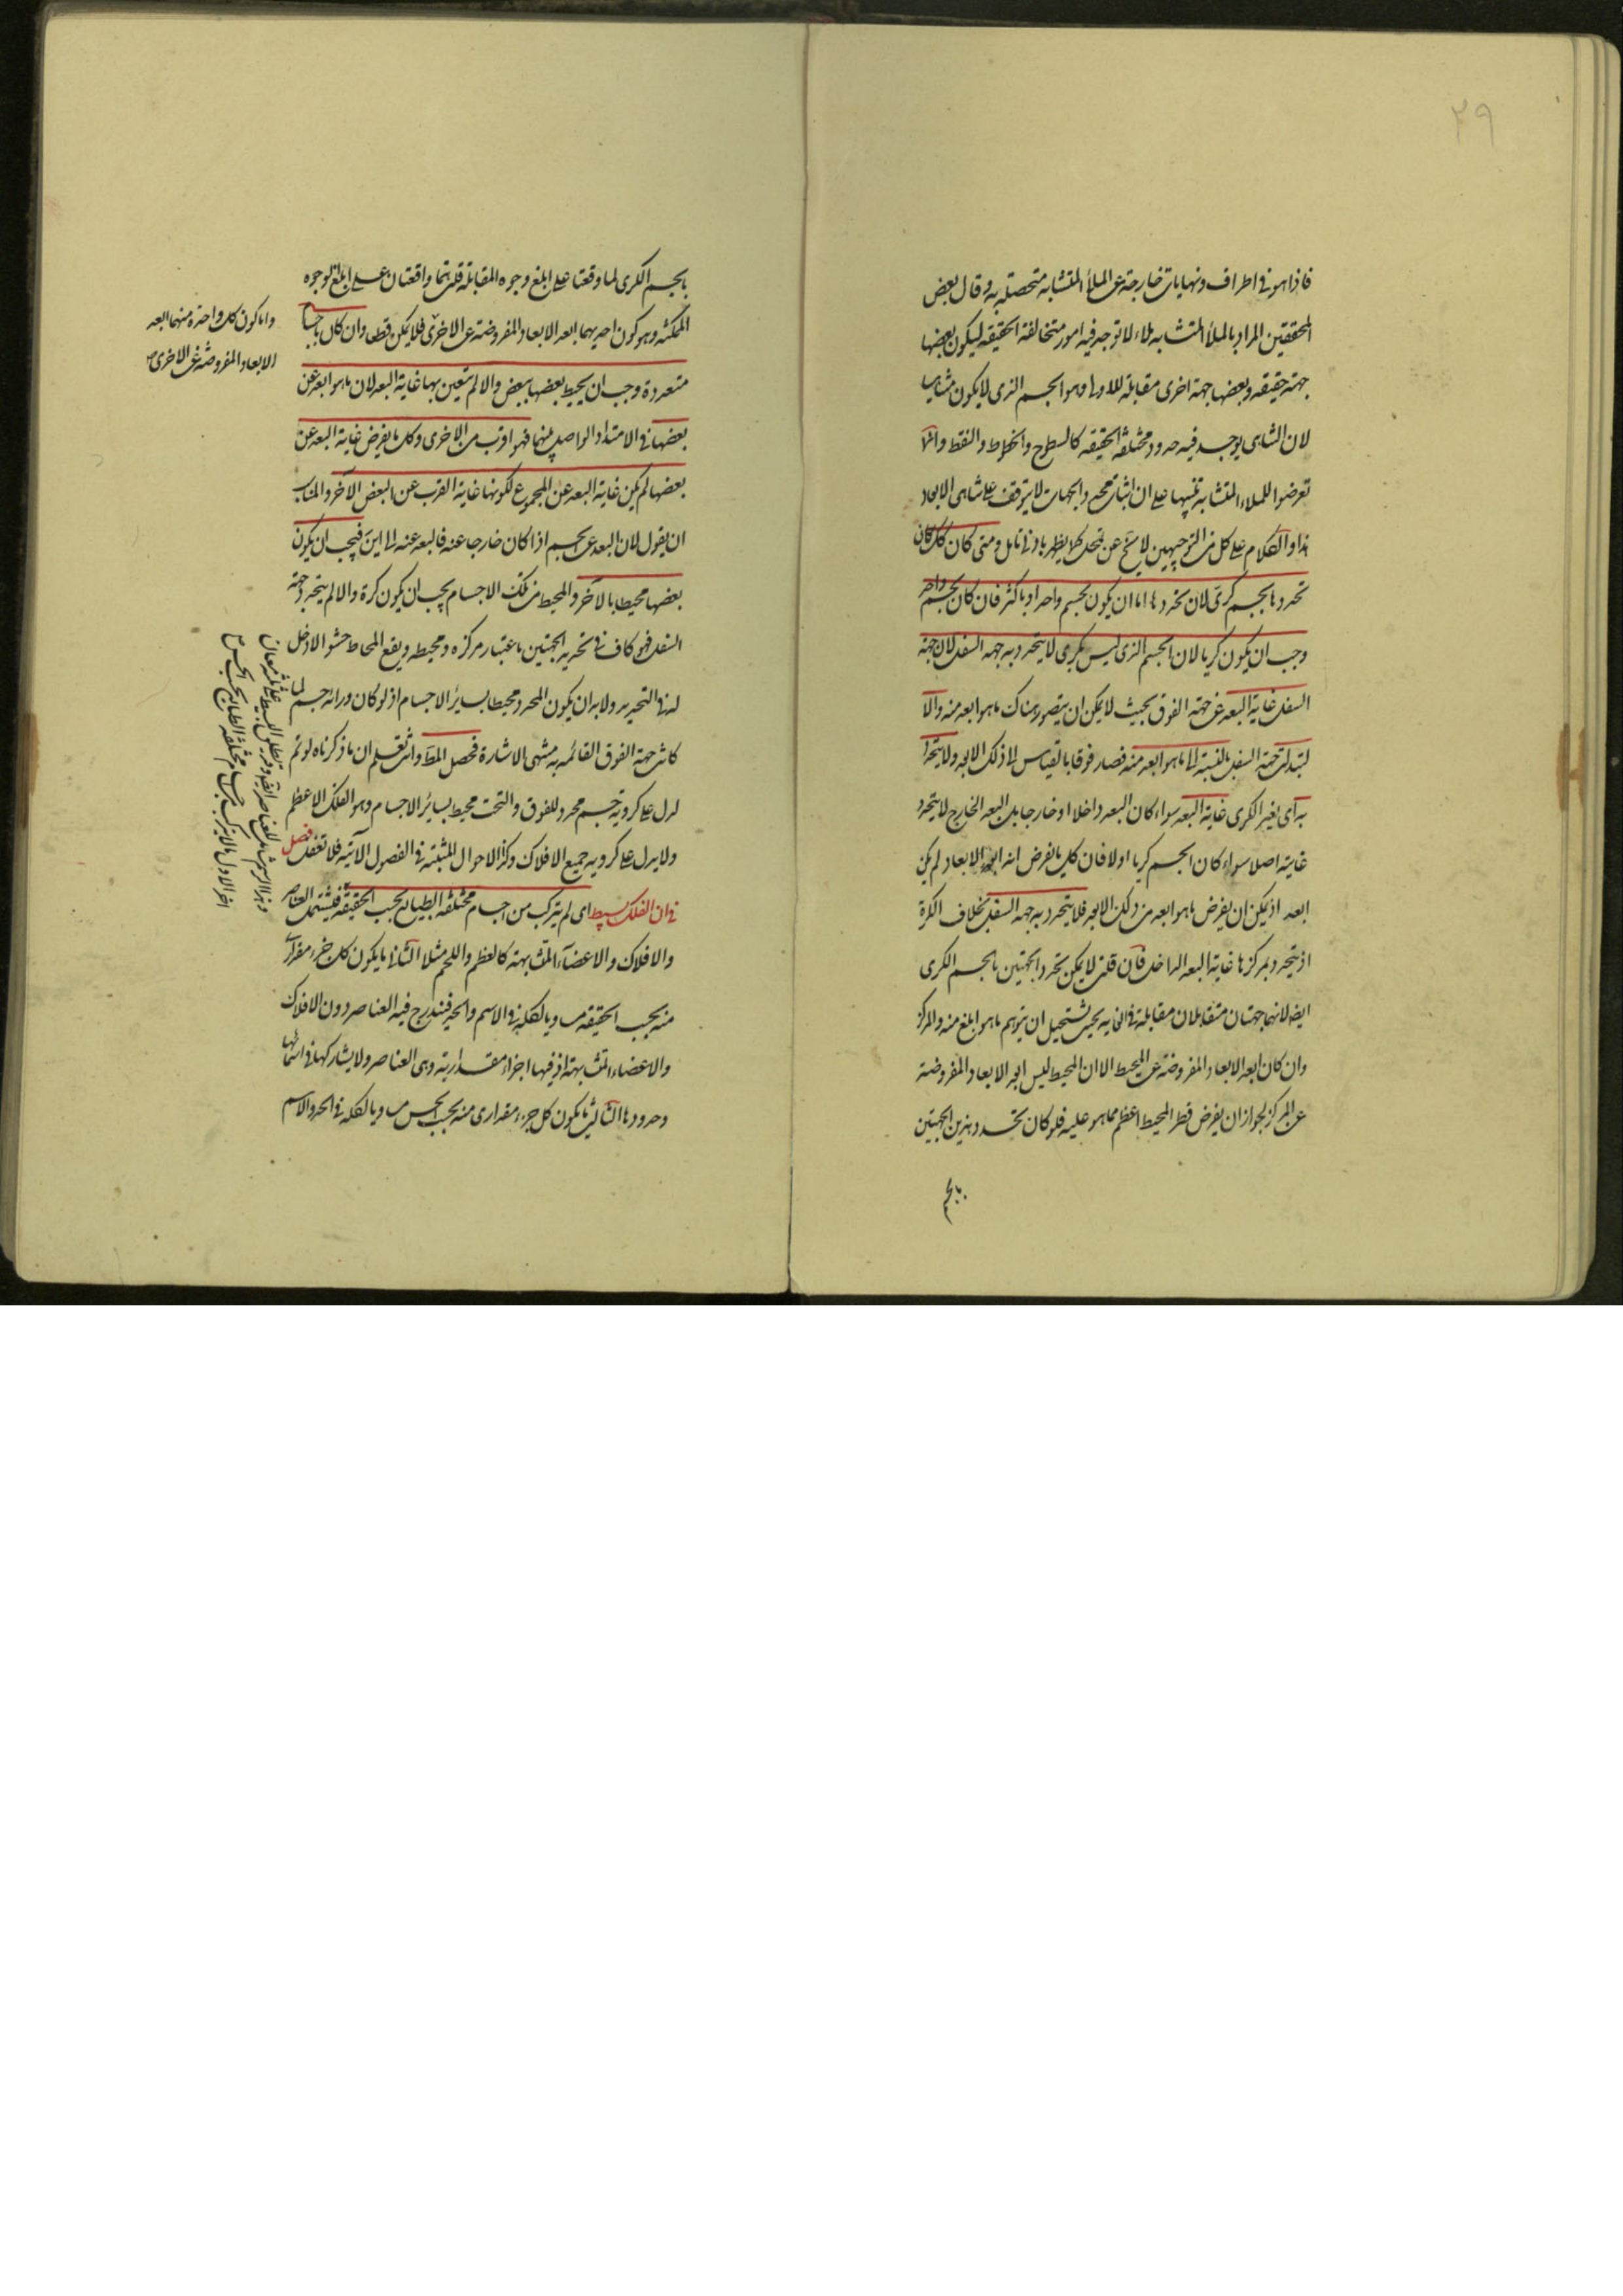 ٢٩
فاذا هو فى اطراف ونهايات خارجة عن الملأ المتشابه متحصلة به وقال بعض
المحققين المراد بالملأ المتشابه ملاء لا توجد فيه امور متخالفة الحقيقه ليكون بعضها
جهة حقيقه وبعضها جهة اخرى مقابلة للاولى وهو الجسم الذى لا يكون متناهيا
لان المتناهى يوجد فيه حدود مختلفة الحقيقه كالسطوح والخطوط والنقط وانما
تعرضوا للملاء المتشابه تنبيها على ان اثبات محدد الجهات لا يتوقف على تناهى الابعاد
هذا والكلام على كل من التوجيهين لا يخ عن تمحل كما يظهر بادنى تامل ومتى كان كذلك كان
تحددها بجسم كرى لان تحددها اما ان يكون بجسم واحد او باكثر فان كان بجسم واحد
وجب ان يكون كريا لان الجسم الذى ليس بكرى لا يتحدد به جهه السفل لان جهة
السفل غاية البعد عن جهة الفوق بحيث لا يمكن ان يتصور هناك ما هو ابعد منه والا
لتبدلت جهة السفل بالنسبة الى ما هو ابعد منه فصار فوقا بالقياس الى ذلك الابعد ولا يتحدد
به اى بغير الكرى غاية البعد سواء كان البعد داخلا او خارجا بل البعد الخارج لا يتحدد
غايته اصلا سواء كان الجسم كريا اولا فان كل ما يفرض انه ابعد الابعاد لم يكن
ابعد اذ يمكن ان يفرض ما هو ابعد من ذلك الابعد فلا يتحدد به جهه السفل بخلاف الكرة
اذ يتحدد بمركزها غاية البعد الداخل فان قلت لا يمكن تحدد الجهتين بالجسم الكرى
ايضا لانهما جهتان متقابلتان مقابلة فى الغايه بحيث يستحيل ان يتوهم ما هو ابلغ منه والمركز
وان كان ابعد الابعاد المفروضة عن المحيط الا ان المحيط ليس ابعد الابعاد المفروضة
عن المركز لجواز ان يفرض قطر المحيط اعظم مما هو عليه فلو كان تحدد هذين الجهتين
بالجسم
بالجسم الكرى لما وقعتا على ابلغ وجوه المقابلة قلت هما واقعتان على ابلغ الوجوه
الممكنه وهو كون احديهما ابعد الابعاد المفروضة عن الاخرى فلا يمكن قطعا وان كان باجسام
متعددة وجب ان يحيط بعضها ببعض والا لم يتعين بها غاية البعد لان ما هو ابعد عن
بعضها فى الامتداد الواصل بينهما فهو اقرب من الاخرى وكل ما يفرض غاية البعد عن
بعضها لم يكن غاية البعد عن المجموع لكونها غاية القرب عن البعض الآخر والمناسب
ان يقول لان البعد عن الجسم اذا كان خارجا عنه فالبعد عنه الى اين فيجب ان يكون
بعضها محيطا بالآخر والمحيط من تلك الاجسام يجب ان يكون كرة والا لم يتحدد جهة
السفل فهو كاف فى تحديد الجهتين باعتبار مركزه ومحيطه ويقع المحاط حشوا لا دخل
له فى التحديد ولا بد ان يكون المحدد محيطا بسائر الاجسام اذ لو كان وراءه جسم لما
كانت جهة الفوق القائمه به منتهى الاشارة فحصل المط وانت تعلم ان ما ذكرناه لو تم
لدل على كروية جسم محدد للفوق والتحت محيط بسائر الاجسام وهو الفلك الاعظم
ولا يدل على كرويه جميع الافلاك وكذا الاحوال المثبتة فى الفصول الآتيه فلا تغفل فصل
فى ان الفلك بسيط اى لم يتركب من اجسام مختلفة الطبايع بحسب الحقيقة فيشتمل العناصر
والافلاك والاعضاء المتشابهة كالعظم واللحم مثلا الثانى ما يكون كل جزء مقدارى
منه بحسب الحقيقه مساويا لكله فى الاسم والحد فيندرج فيه العناصر دون الافلاك
والاعضاء المتشابهة اذ فيها اجزاء مقدارية وهى العناصر ولا يشاركها فى اسمائها
وحدودها الثالث ما يكون كل جزء مقدارى منه بحسب الحس مساويا لكله فى الحد والاسم
واما كون كل واحدة منهما ابعد
الابعاد المفروضة عن الاخرى